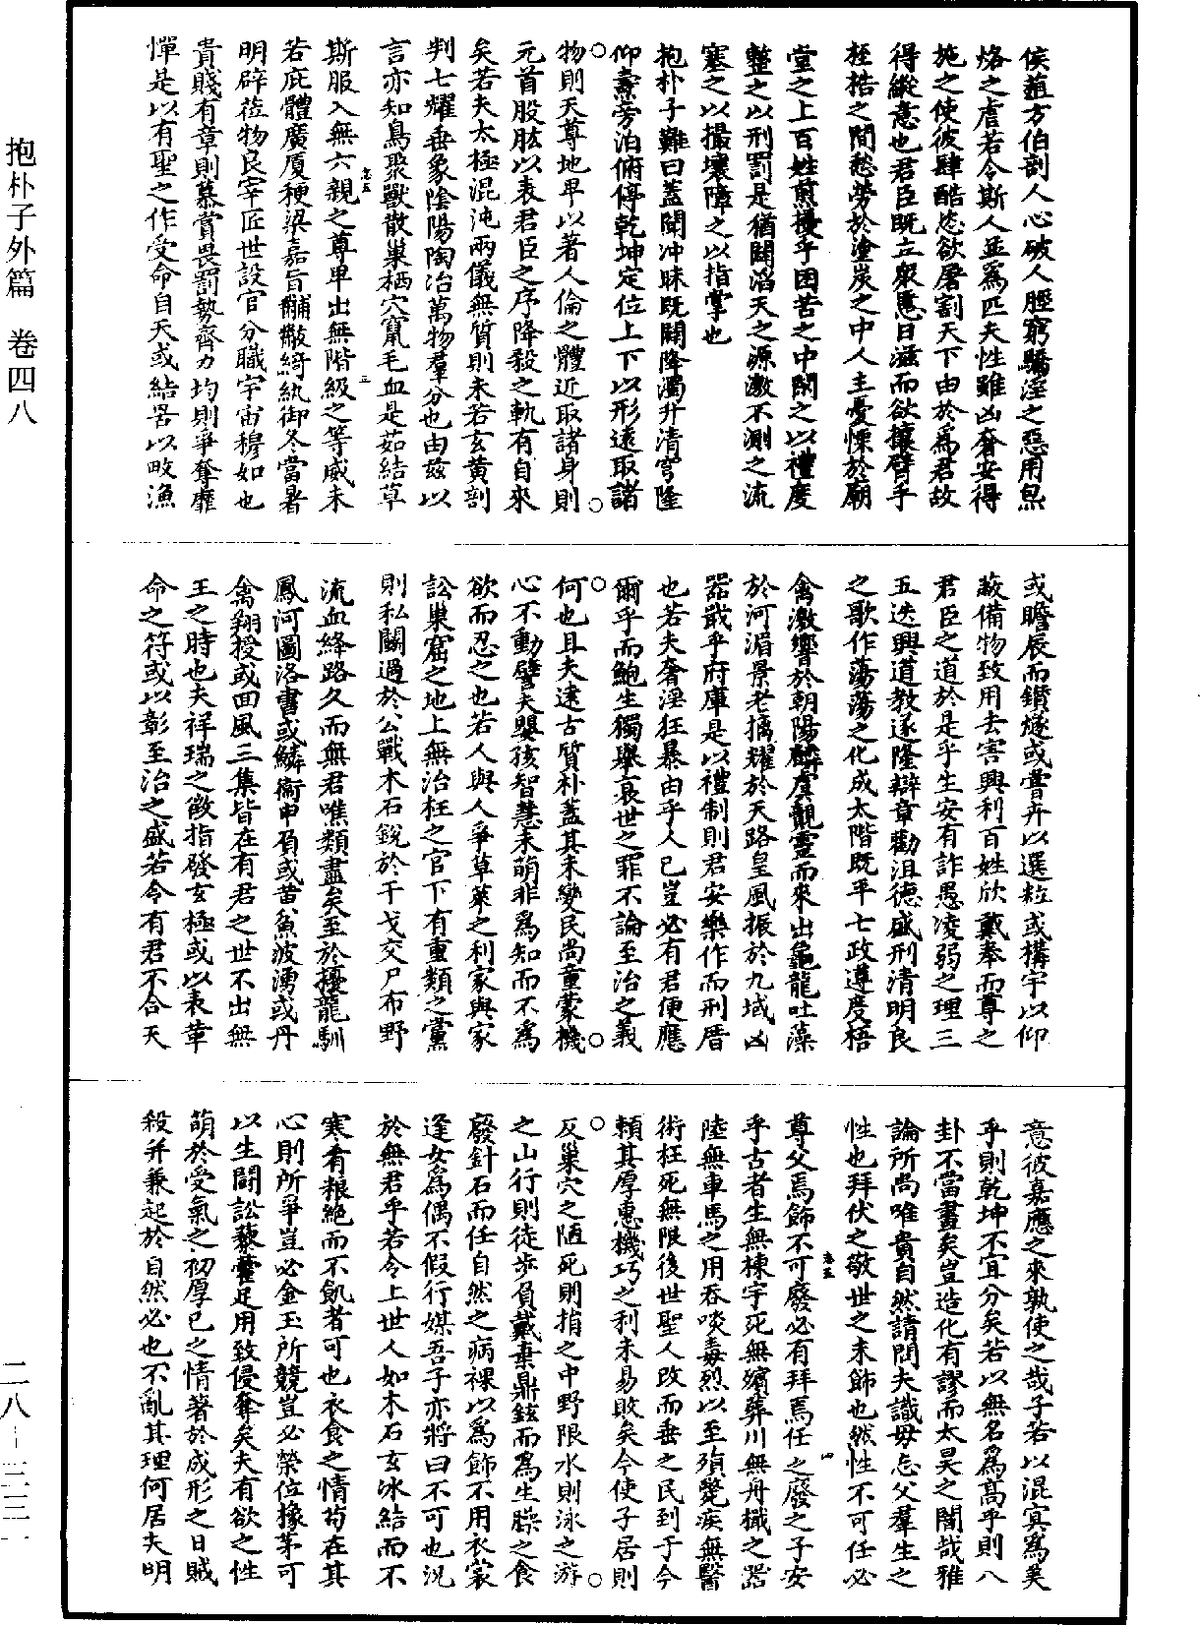 抱朴子外篇 卷四八
二八—三三一
侯葅方伯剖人心破人脛窮驕淫之惡用炰
烙之虐若令斯人並爲匹夫性雖凶奢安得
施之使彼肆酷恣欲屠割天下由於爲君故
得縱意也君臣既立衆慝日滋而欲攘臂乎
桎梏之間愁勞於塗炭之中人主憂慄於廟
堂之上百姓煎擾乎困苦之中閑之以禮度
整之以刑罰是猶闢滔天之源激不測之流
塞之以撮壤障之以指掌也
抱朴子難曰蓋聞冲昧既闢降濁升清穹隆
仰燾旁泊俯停乾坤定位上下以形遠取諸
物則天尊地卑以著人倫之體近取諸身則
元首股肱以表君臣之序降殺之軌有自來
矣若夫太極混沌兩儀無質則未若玄黃剖
判七耀垂象陰陽陶冶萬物羣分也由茲以
言亦知鳥聚獸散巢栖穴竄毛血是茹結草
斯服入無六親之尊卑出無階級之等威未
若庇體廣厦稉梁嘉旨黼黻綺紈御冬當暑
明辟莅物良宰匠世設官分職宇宙穆如也
貴賤有章則慕賞畏罰勢齊力均則爭奪靡
憚是以有聖之作受命自天或結罟以畋漁
或瞻辰而鑽燧或嘗卉以選粒或構宇以仰
蔽備物致用去害興利百姓欣戴奉而尊之
君臣之道於是乎生安有詐愚凌弱之理三
五迭興道教遂隆辯章勸沮德盛刑清明良
之歌作蕩蕩之化成太階既平七政遵度梧
禽激響於朝陽麟虞覿靈而來出龜龍吐藻
於河湄景老摛耀於天路皇風振於九域凶
器戢乎府庫是以禮制則君安樂作而刑厝
也若夫奢淫狂暴由乎人己豈必有君便應
爾乎而鮑生獨舉衰世之罪不論至治之義
何也且夫遠古質朴蓋其未變民尚童蒙機
心不動譬夫嬰孩智慧未萌非爲知而不爲
欲而忍之也若人與人爭草萊之利家與家
訟巢窟之地上無治枉之官下有重類之黨
則私鬭過於公戰木石銳於干戈交尸布野
流血絳路久而無君噍類盡矣至於擾龍馴
鳳河圖洛書或鱗銜甲負或黃魚波湧或丹
禽翔授或回風三集皆在有君之世不出無
王之時也夫祥瑞之徵指發玄極或以表革
命之符或以彰至治之盛若令有君不合天
意彼嘉應之來孰使之哉子若以混冥爲美
乎則乾坤不宜分矣若以無名爲高乎則八
卦不當畫矣豈造化有謬而太昊之闇哉雅
論所尚唯貴自然請問夫識母忘父羣生之
性也拜伏之敬世之末飾也然性不可任必
尊父焉飾不可廢必有拜焉任之廢之子安
乎古者生無棟宇死無殯葬川無舟檝之器
陸無車馬之用吞啖毒烈以至殞斃疾無醫
術枉死無限後世聖人改而垂之民到于今
賴其厚惠機巧之利未易敗矣今使子居則
反巢穴之陋死則捐之中野限水則泳之游
之山行則徒步負戴棄鼎鉉而爲生臊之食
廢針石而任自然之病裸以爲飾不用衣裳
逢女爲偶不假行媒吾子亦將曰不可也況
於無君乎若令上世人如木石玄冰結而不
寒肴粮絶而不飢者可也衣食之情苟在其
心則所爭豈必金玉所競豈必榮位橡茅可
以生鬭訟藜藿足用致侵奪矣夫有欲之性
萌於受氣之初厚已之情著於成形之日賊
殺并兼起於自然必也不亂其理何居夫明